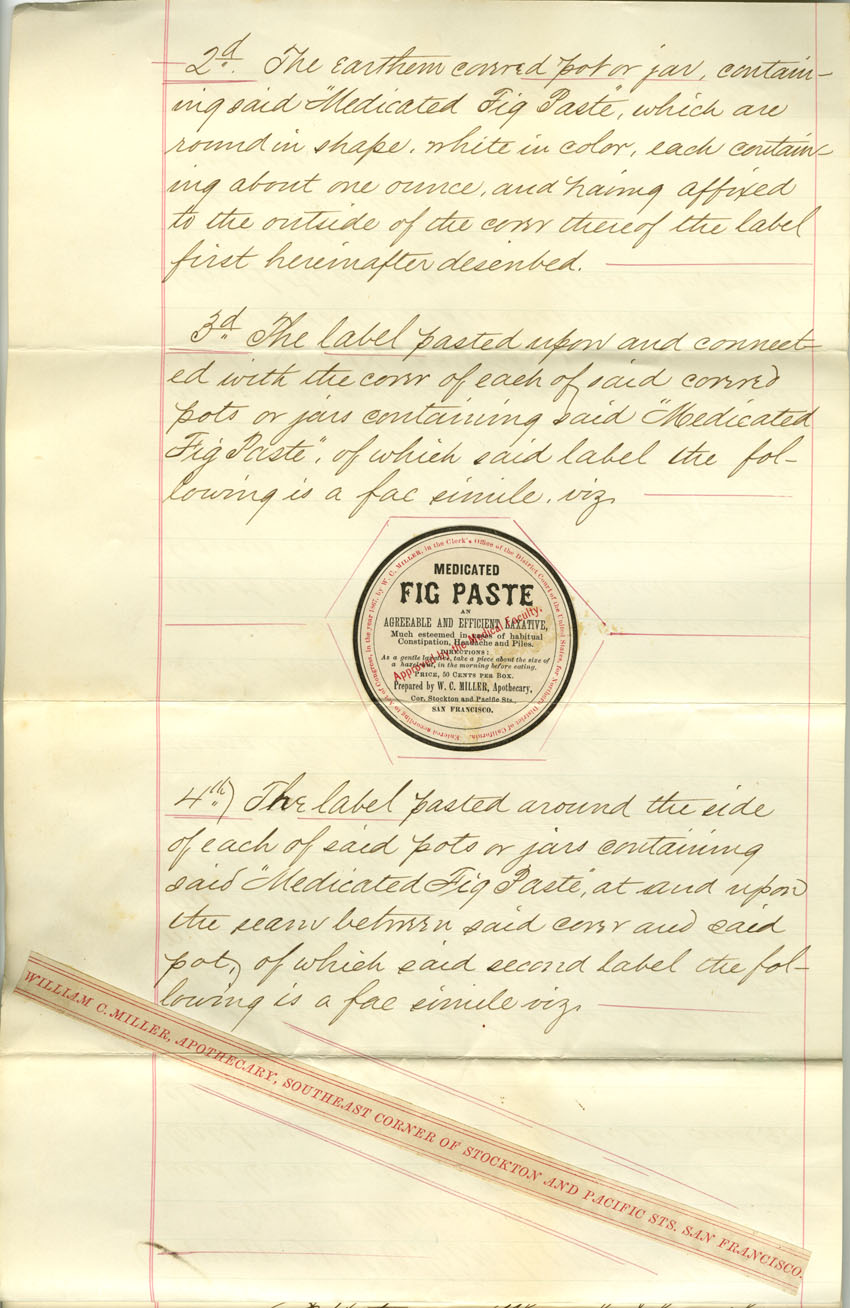 2d. The earthern covered pot or jar, contain-
ing said "Medicated Fig Paste", which are
round in shape, white in color, each contain-
ing about one ounce, and having affixed
to the outside of the cover thereof the label
first hereinafter described.
3d. The label pasted upon and connect-
ed with the cover of each of said covered
pots or jars containing said "Medicated
Fig Paste", of which said label the fol-
lowing is a fac simile, viz,
Entered According to Act of Congress, in the year 1867, by W. C. MILLER, in the Clerk's Office of the District Court of the United States, for Northern District of California.
MEDICATED
FIG PASTE
AN
AGREEABLE AND EFFICIENT LAXATIVE,
Much esteemed in cases of habitual
Constipation, Headache and Piles.
DIRECTIONS:
As a gentle laxative, take a piece about the size of
a hazelnut, in the morning before eating.
PRICE, 50 CENTS PER BOX.
Prepared by W. C. MILLER, Apothecary,
Cor. Stockton and Pacific Sts.,
SAN FRANCISCO.
Approved by the Medical Faculty.
4th) The label pasted around the side
of each of said pots or jars containing
said "Medicated Fig Paste", at and upon
the seam between said cover and said
pot, of which said second label the fol-
lowing is a fac simile viz,
WILLIAM C. MILLER, APOTHECARY, SOUTHEAST CORNER OF STOCKTON AND PACIFIC STS. SAN FRANCISCO.